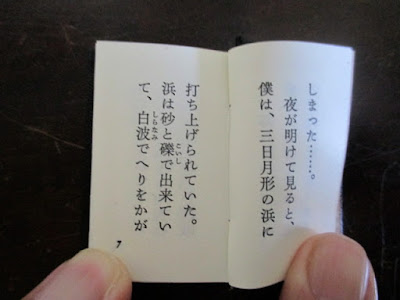 しまった……。
夜が明けて見ると、
僕は、三日月形の浜に
打ち上げられていた。
浜は砂と礫で出来てい
といし
て、白波でへりをかが
しらなみ
7